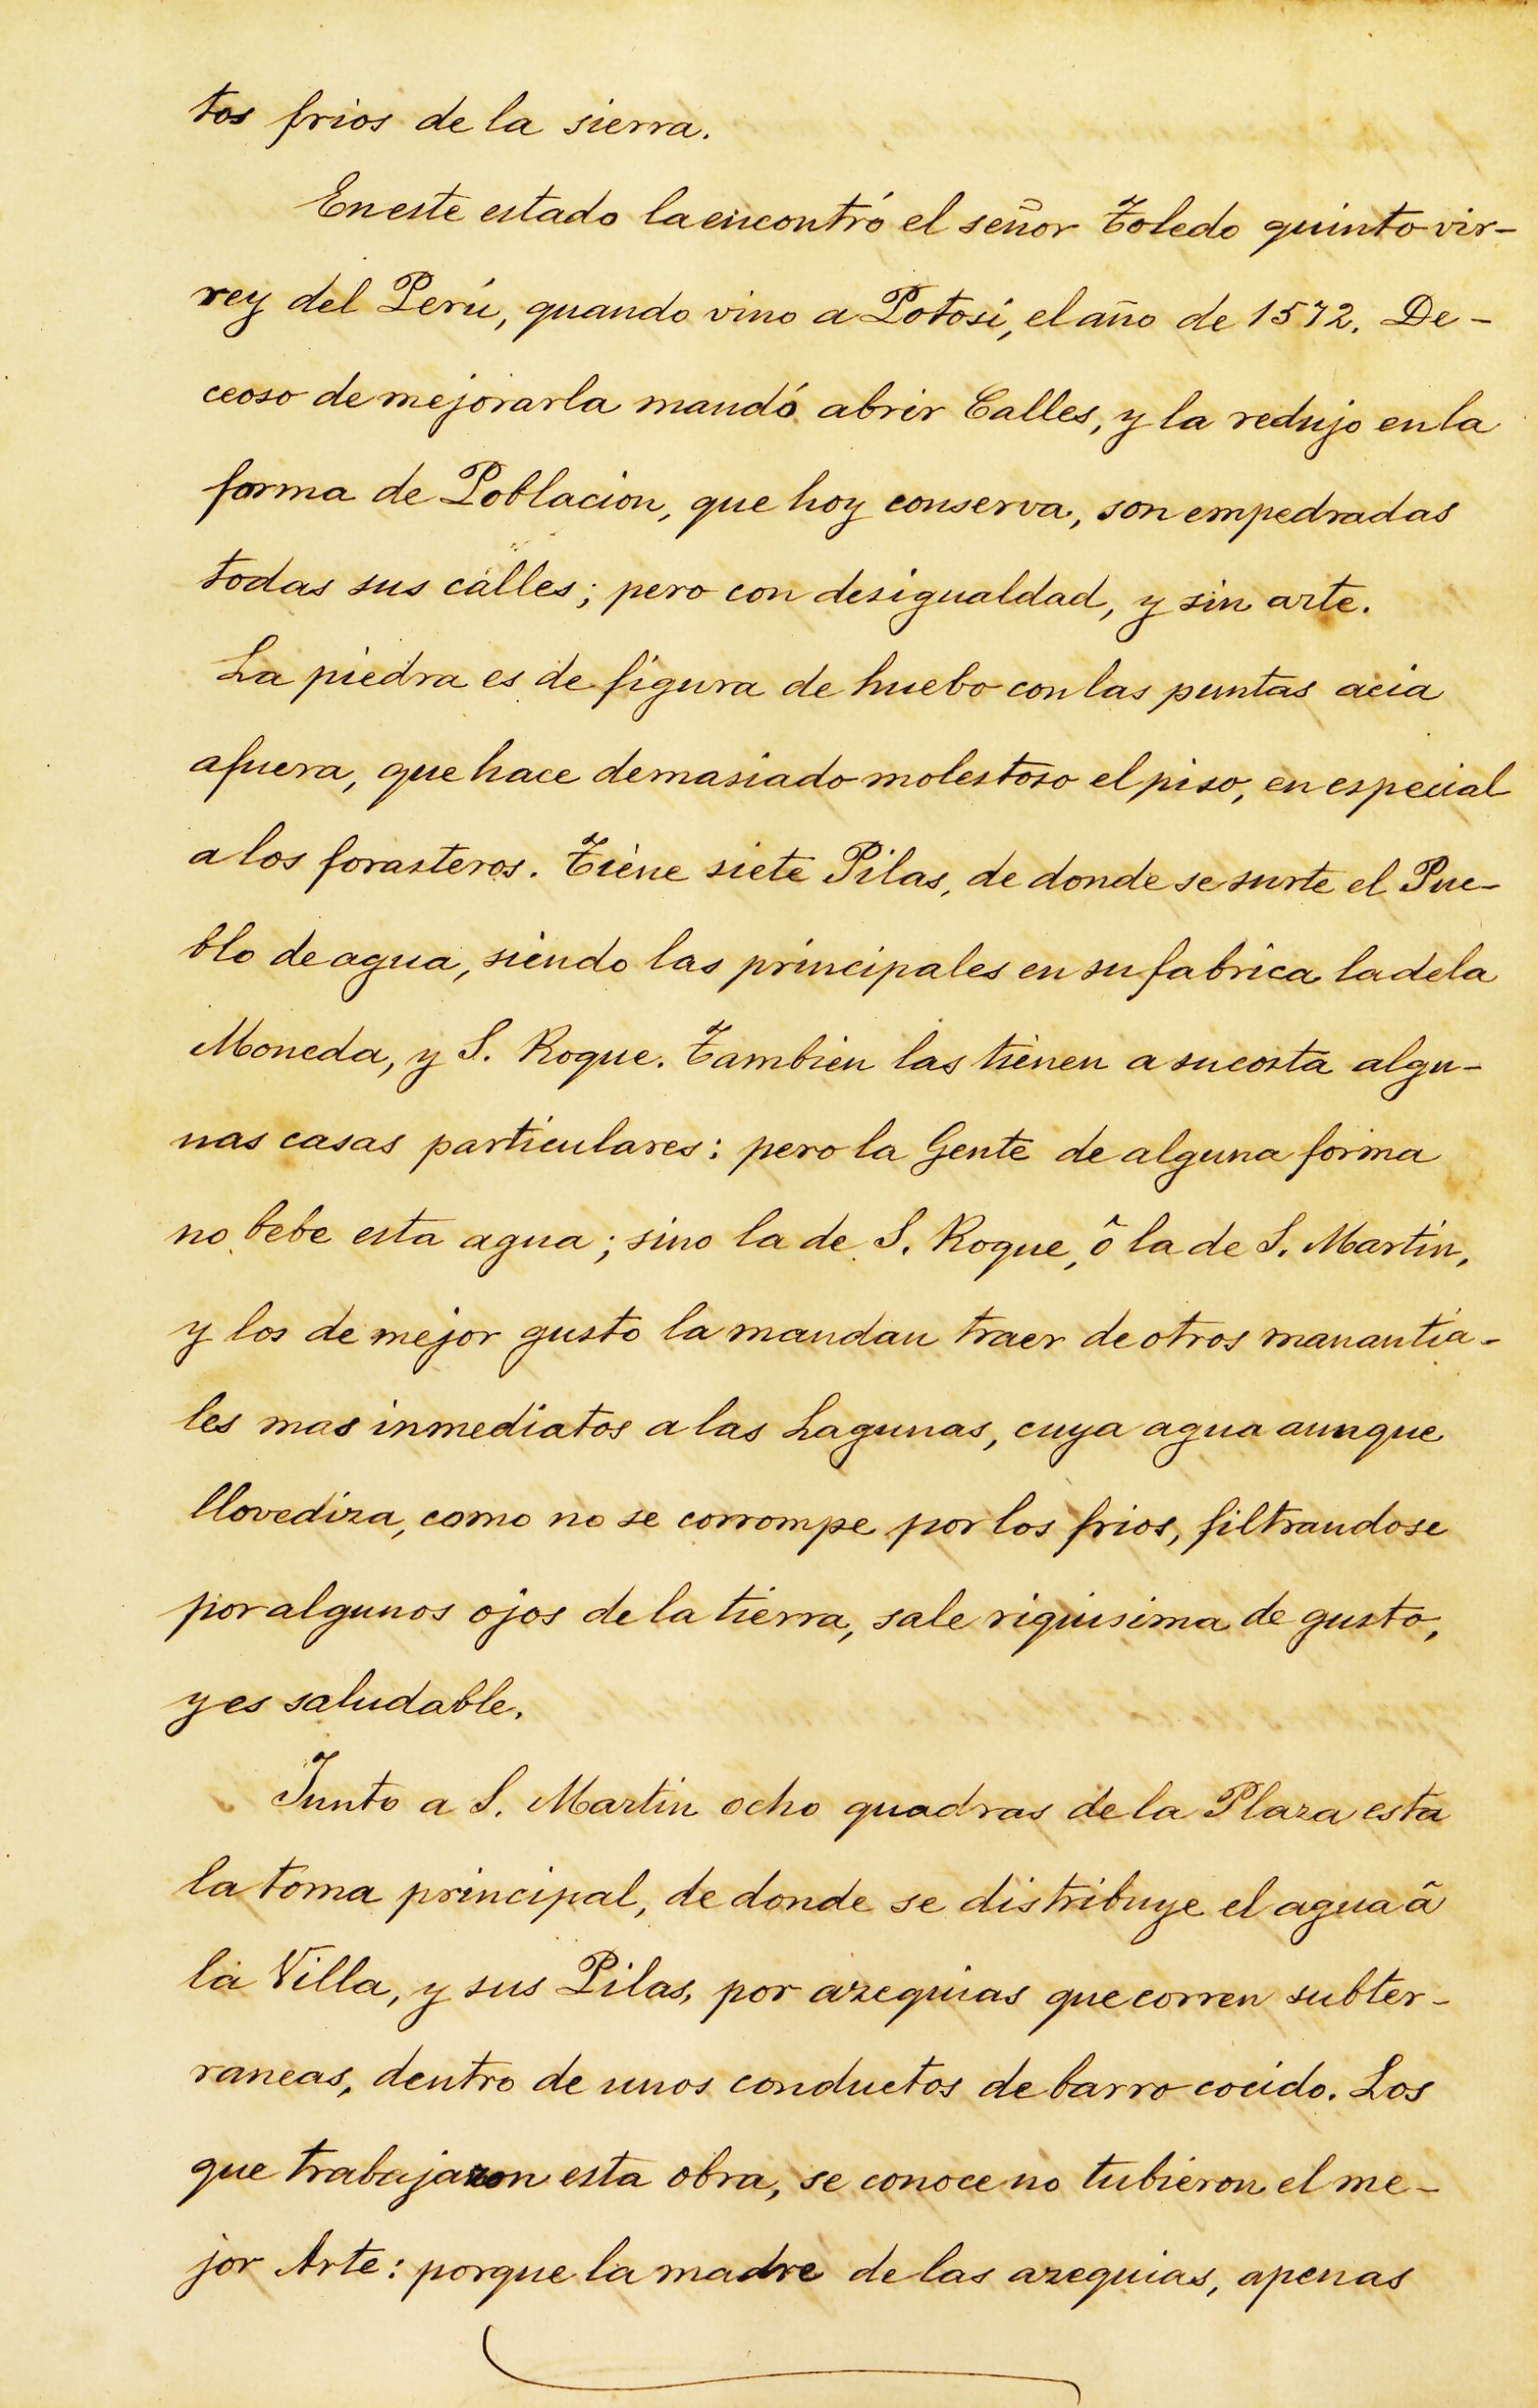 tos frios de la sierra.
En este estado la encontró el señor Toledo quinto vir-
rey del Perú, quando vino a Potosi, el año de 1572. De-
ceoso de mejorarla mandó abrir Calles, y la redujo en la
forma de Poblacion, que hoy conserva, son empedradas
todas sus calles; pero con desigualdad, y sin arte.
La piedra es de figura de huebo con las puntas acia
afuera, que hace demasiado molestoso el piso, en especial
a los forasteros. Tiene siete Pilas, de donde se surte el Pue-
blo de agua, siendo las principales en su fabrica la de la
Moneda, y S. Roque. Tambien las tienen a su costa algu-
nas casas particulares: pero la Gente de alguna forma
no bebe esta agua; sino la de S. Roque, ô la de S. Martin,
y los de mejor gusto la mandan traer de otros manantia-
les mas inmediatos a las Lagunas, cuya agua aunque
llovediza, como no se corrompe por los frios, filtrandose
por algunos ojos de la tierra, sale riquisima de gusto,
y es saludable.
Junto a S. Martin ocho quadras de la Plaza esta
la toma principal, de donde se distribuye el agua ã
la Villa, y sus Pilas, por azequias que corren subter-
raneas, dentro de unos conductos de barro cocido. Los
que trabajaron esta obra, se conoce no tubieron el me-
jor Arte: porque la madre de las azequias, apenas